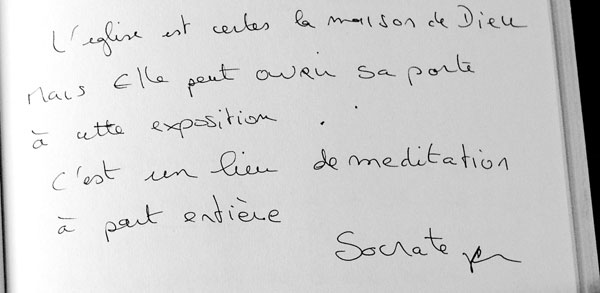 L'eglise est certes la maison de Dieu
Mais Elle peut ouvrir sa porte
à cette exposition .
C'est un lieu de meditation
à part entière
Socrate